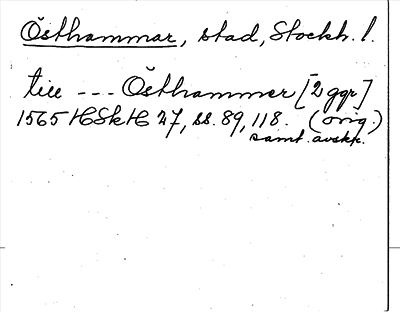 Östhammar, stad, Stockh. l.
till --- Östhammer [2 ggr]
1565 HSkH 27, ss. 89, 118. (orig.)
samt avskr.